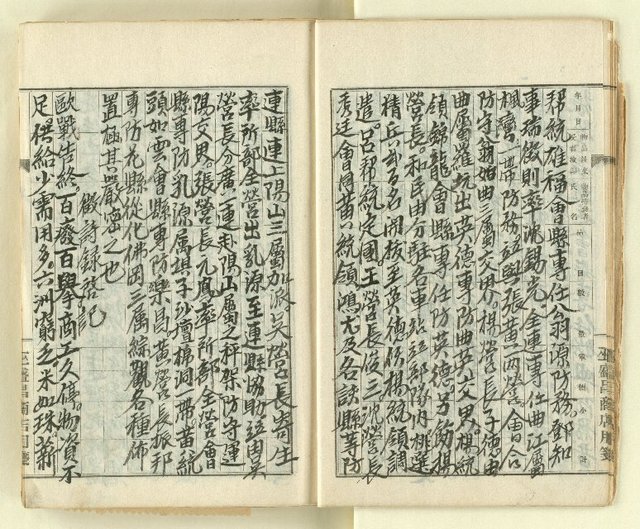 幫統雄福會縣專任翁源防務鄧知
事瑞俊則率沈錫光全連專任曲江屬
楓灣一帶防務認與張黃一兩營會合
防守翁始曲三屬交界楊營長子德由
曲屬羅坑出英德專防曲英交界楊統
領錦龍會縣專任防英德乳防楊
營長利民由分駐各車站部隊內挑選
精兵貳百名開拔至英德候楊統領調
遣呂幫統定國王營長俊三沈營長
秀廷會同黃統領鴻尤及各該縣等防
連縣連上陽山三屬加派吳營長寄生
率所部全營出乳源至連縣協助至由吳
營長分廣一連赴陽山屬之秤架防守連
陽交界張營長元胤率所部全營會
縣專防乳源屬棋子沙壇梯洞一帶黃統
頭如雲會縣專防樂昌黃營長振邦
專防花縣從化佛岡三屬綜觀各種佈
置極其嚴密之也
徵詩錄啓記
歐戰告終百廢百舉商工久停物資不
足供給少需用多六洲窮乏米如珠薪